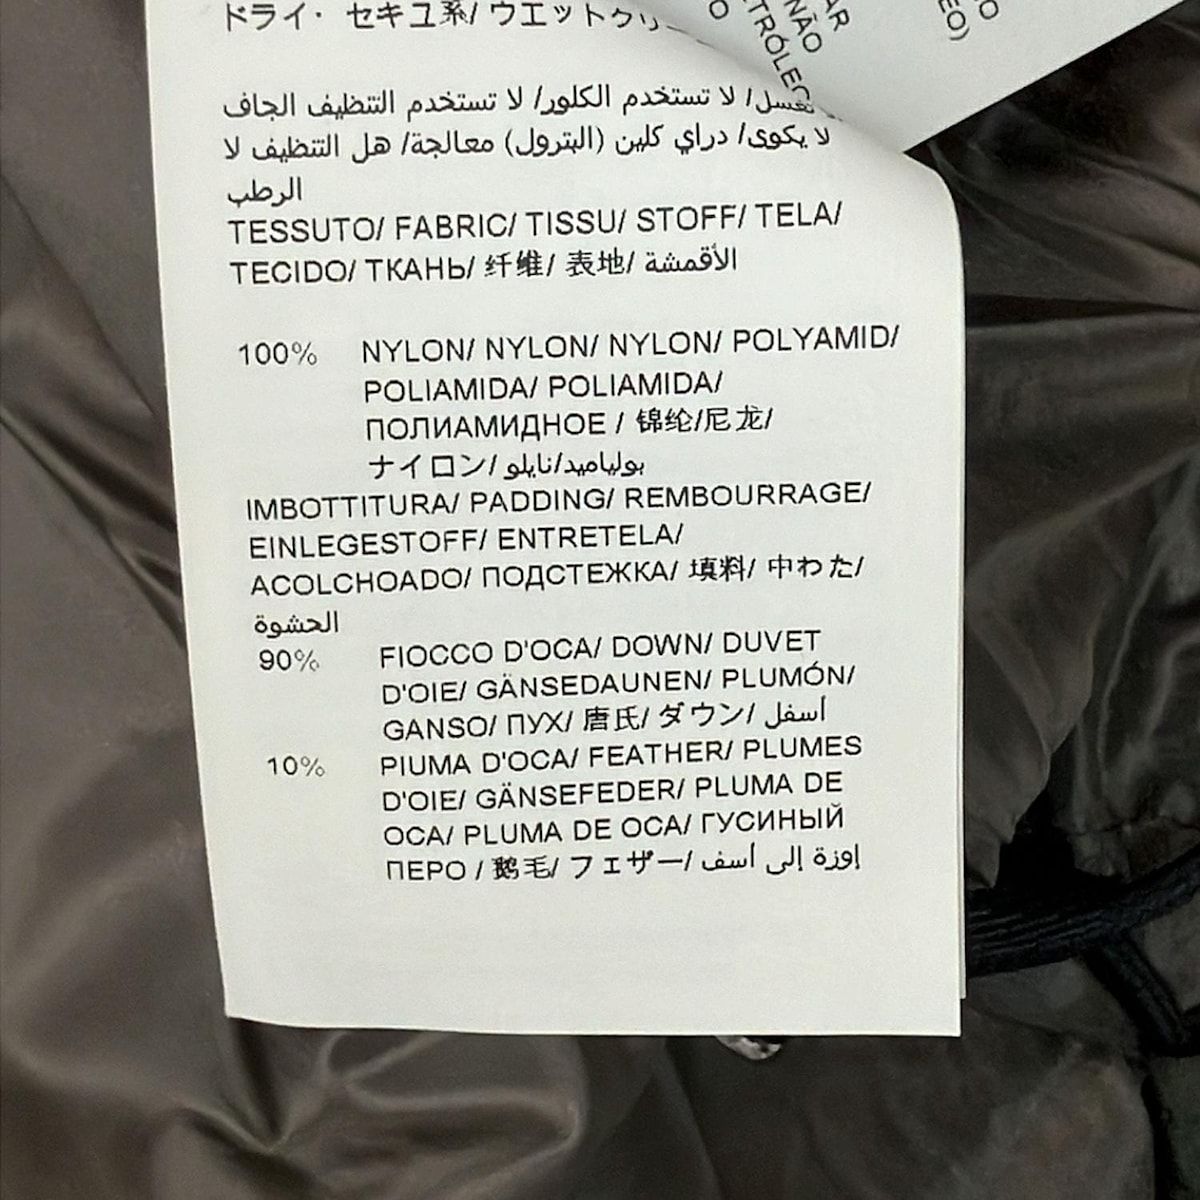 ドライ・ セキユ系/ ウエットクリ
لا تغسل/ لا تستخدم الكلور/ لا تستخدم التنظيف الجاف
لا يكوى/ دراي كلين (البترول) معالجة/ هل التنظيف لا
الرطب
TESSUTO/ FABRIC/ TISSU/ STOFF/ TELA/
TECIDO/ ТКАНЬ/ 纤维/ 表地/ الأقمشة
100% NYLON/ NYLON/ NYLON/ POLYAMID/
POLIAMIDA/ POLIAMIDA/
ПОЛИАМИДНОЕ / 锦纶/尼龙/
ナイロン/ بولياميد/نايلو
IMBOTTITURA/ PADDING/ REMBOURRAGE/
EINLEGESTOFF/ ENTRETELA/
ACOLCHOADO/ ПОДСТЕЖКА/ 填料/ 中わた/
الحشوة
90% FIOCCO D'OCA/ DOWN/ DUVET
D'OIE/ GÄNSEDAUNEN/ PLUMÓN/
GANSO/ ПУХ/ 唐氏/ ダウン/ أسفل
10% PIUMA D'OCA/ FEATHER/ PLUMES
D'OIE/ GÄNSEFEDER/ PLUMA DE
OCA/ PLUMA DE OCA/ ГУСИНЫЙ
ПЕРО / 鹅毛/ フェザー/ إوزة إلى أسف
NÃO